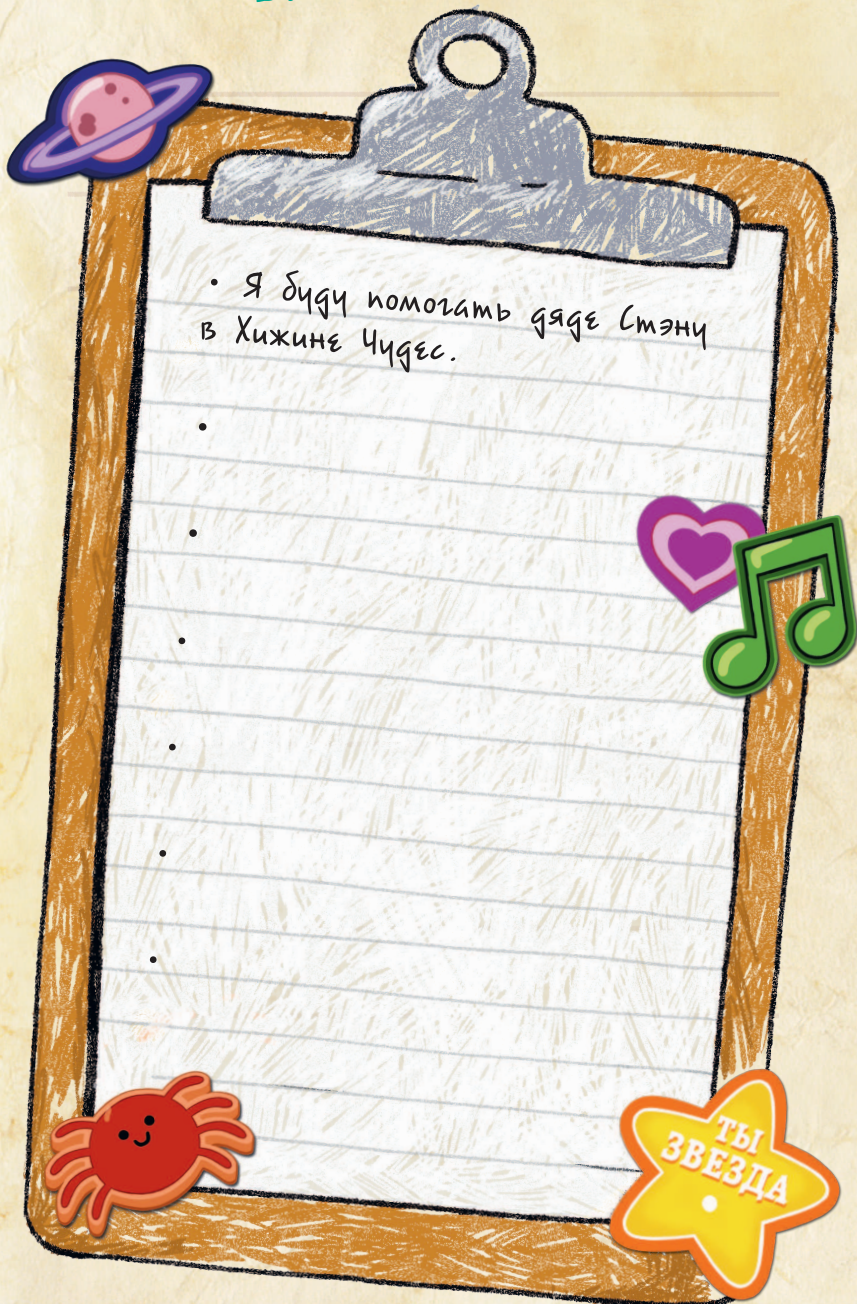 • Я буду помогать дяде Стэну
в Хижине Чудес.
•
•
•
•
•
•
ТЫ
ЗВЕЗДА